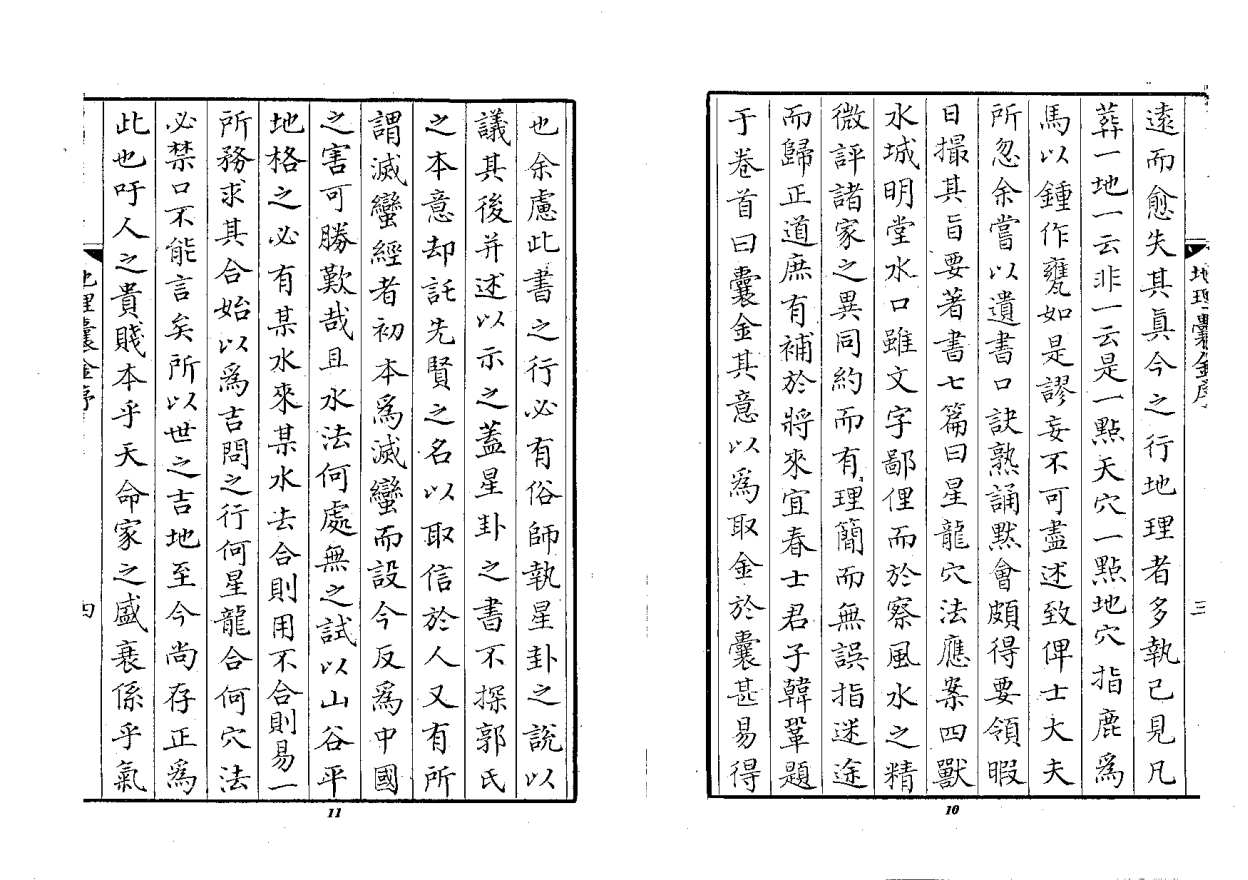 地理囊金序
三
遠而愈失其眞今之行地理者多執己見凡
葬一地一云非一云是一點天穴一點地穴指鹿爲
馬以鍾作甕如是謬妄不可盡述致俾士大夫
所忽余嘗以遺書口訣熟誦默會頗得要領暇
日撮其旨要著書七篇曰星龍穴法應案四獸
水城明堂水口雖文字鄙俚而於察風水之精
微評諸家之異同約而有理簡而無誤指迷途
而歸正道庶有補於將來宜春士君子韓鞏題
于卷首曰囊金其意以爲取金於囊甚易得
10
也余慮此書之行必有俗師執星卦之說以
議其後并述以示之蓋星卦之書不探郭氏
之本意却託先賢之名以取信於人又有所
謂滅蠻經者初本爲滅蠻而設今反爲中國
之害可勝歎哉且水法何處無之試以山谷平
地格之必有某水來某水去合則用不合則易一
所務求其合始以爲吉問之行何星龍合何穴法
必禁口不能言矣所以世之吉地至今尚存正爲
此也吁人之貴賤本乎天命家之盛衰係乎氣
地理囊金序
四
11